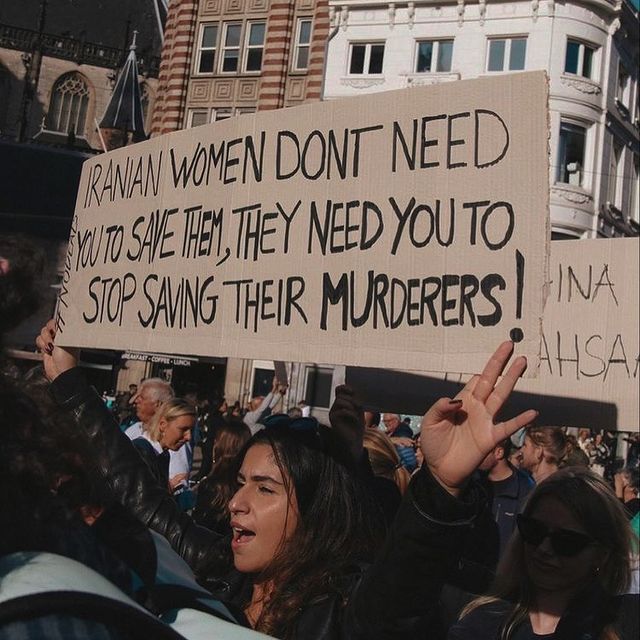 IRANIAN WOMEN DONT NEED
YOU TO SAVE THEM, THEY NEED YOU TO
STOP SAVING THEIR MURDERERS!
INA
AHSA
BREAKFAST - COFFEE - LUNCH